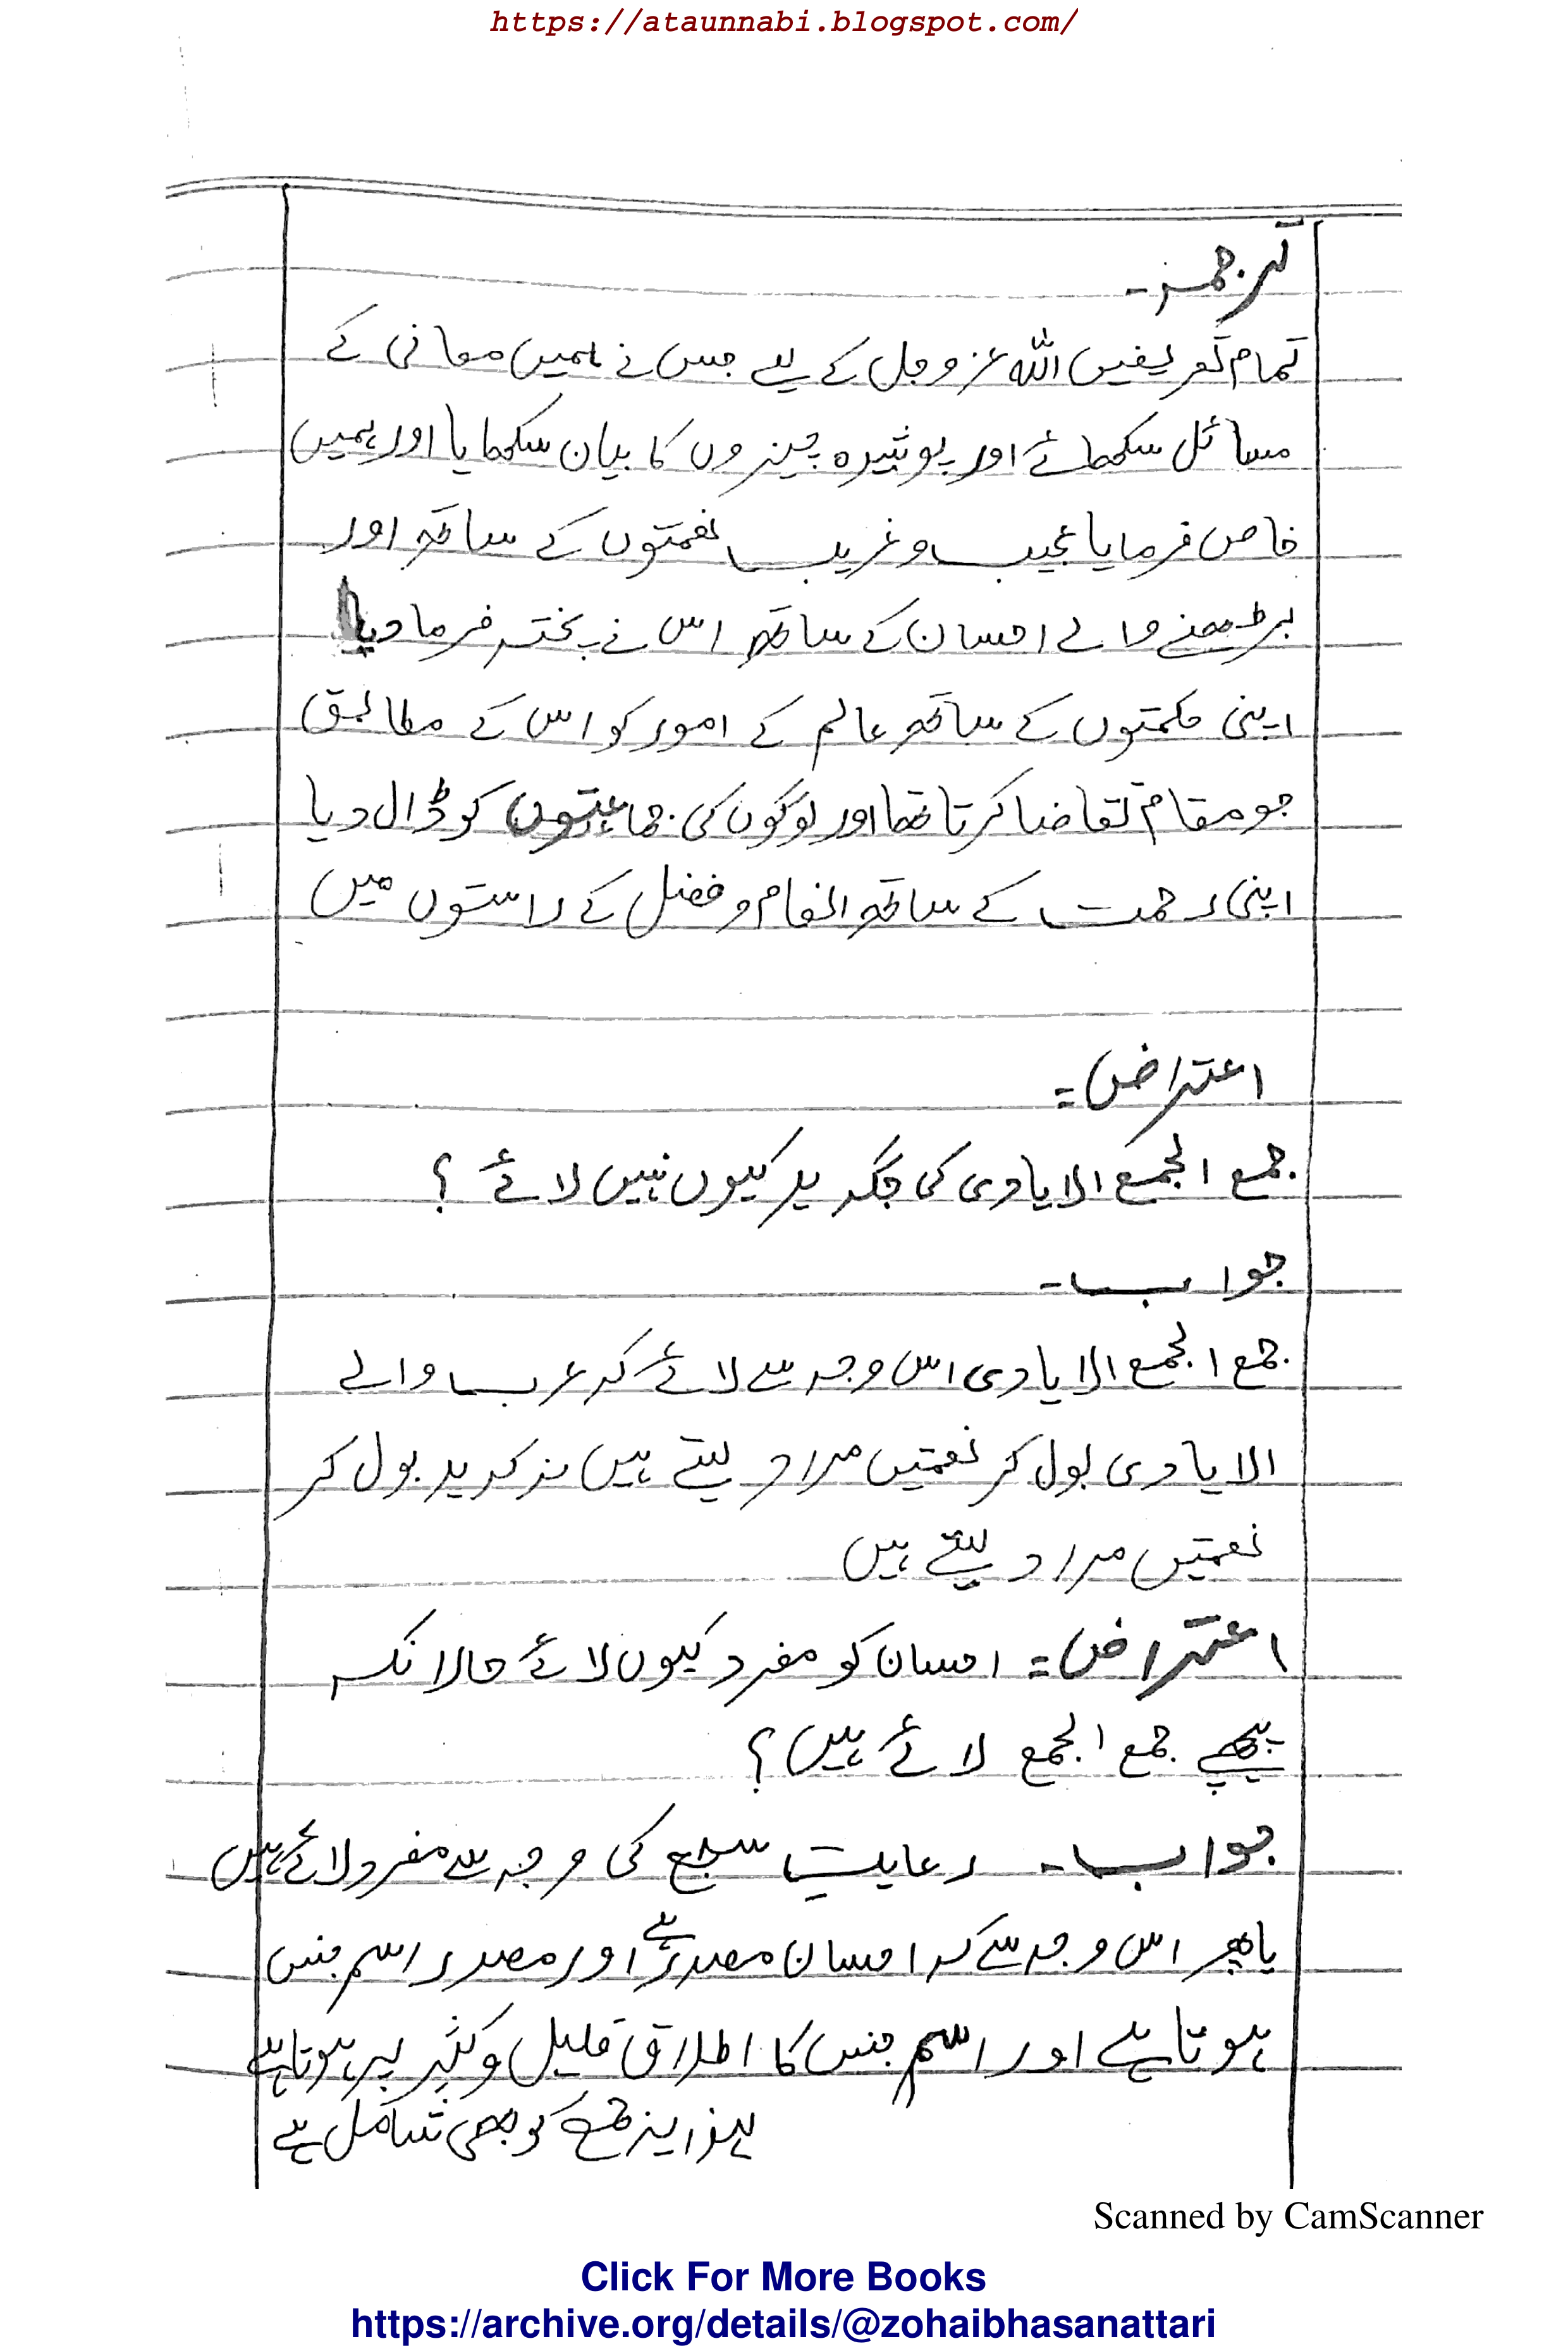 https://ataunnabi.blogspot.com/
ترجمہ۔
تمام تعریفیں اللہ عزوجل کے لیے جس نے ہمیں معانی کے
مسائل سکھائے اور پوشیدہ چیزوں کا بیان سکھایا اور ہمیں
خاص فرمایا عجیب و غریب نعمتوں کے ساتھ اور
بڑھنے والے احسان کے ساتھ اس نے پختہ فرما دیا
اپنی حکمتوں کے ساتھ عالم کے امور کو اس کے مطابق
جو مقام تقاضا کرتا تھا اور لوگوں کی جماعتوں کو ڈال دیا
اپنی رحمت کے ساتھ انعام و فضل کے راستوں میں
اعتراض۔
جمع الجمع الایادی کی جگہ ید کیوں نہیں لائے ؟
جواب۔
جمع الجمع الایادی اس وجہ سے لائے کہ عرب والے
الایادی بول کر نعمتیں مراد لیتے ہیں نہ کہ ید بول کر
نعمتیں مراد لیتے ہیں
اعتراض۔ احسان کو مفرد کیوں لائے حالانکہ
پیچھے جمع الجمع لائے ہیں ؟
جواب۔ رعایتِ سجع کی وجہ سے مفرد لائے ہیں
یا پھر اس وجہ سے کہ احسان مصدر ہے اور مصدر اسم جنس
ہوتا ہے اور اسم جنس کا اطلاق قلیل و کثیر پر ہوتا ہے
لہذا یہ جمع کو بھی شامل ہے
Scanned by CamScanner
Click For More Books
https://archive.org/details/@zohaibhasanattari